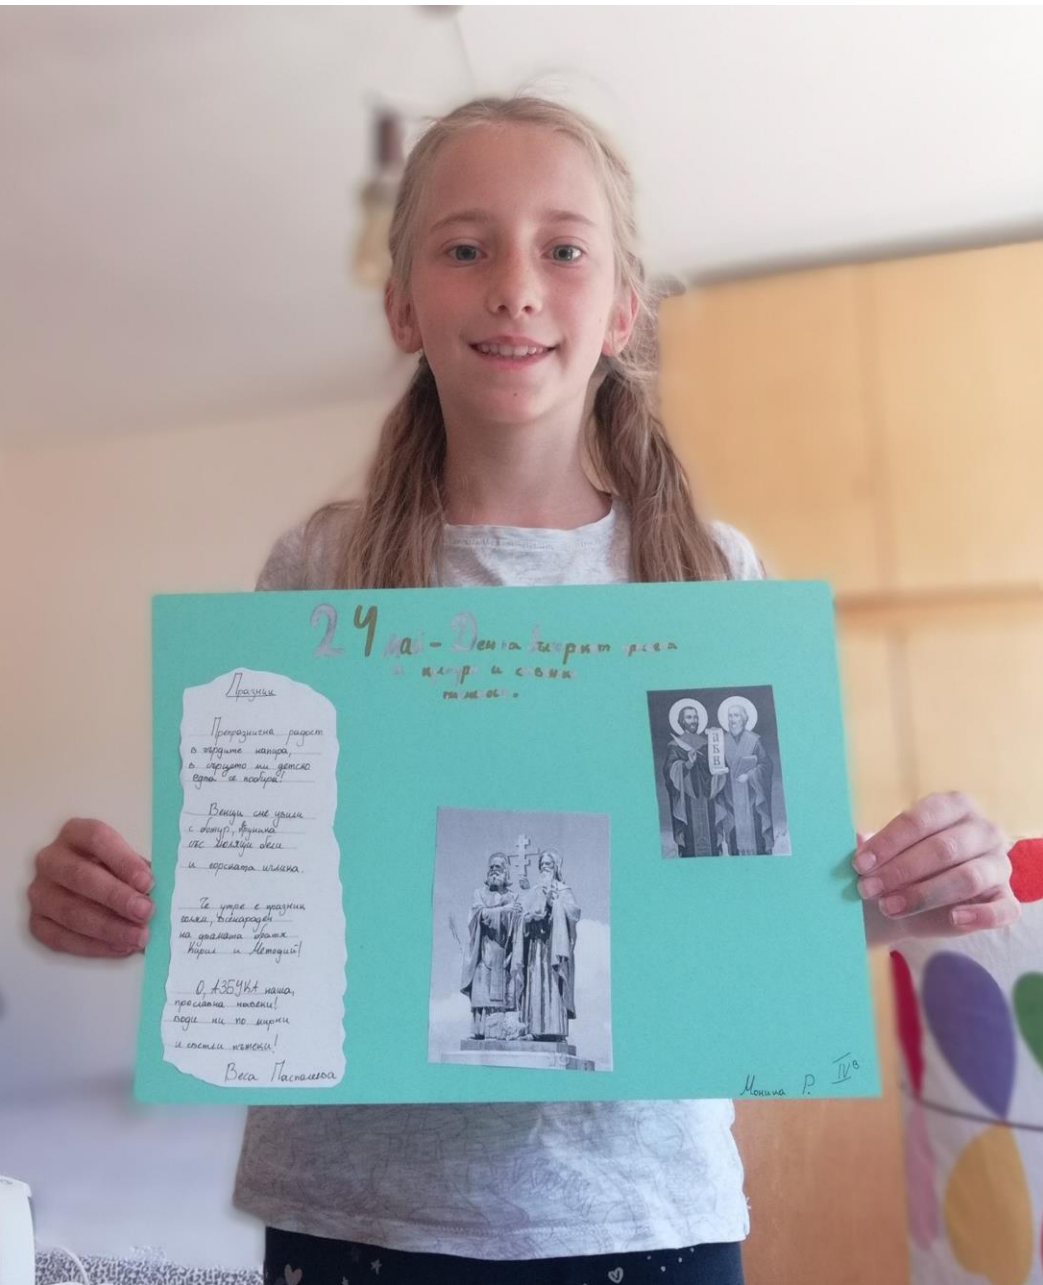 24 май - Ден на българската
и култура и славянс
писменост.
Празник
Препразнична радост
в гърдите напира,
в сърцето ни детско
едва се побира!
Венци сме увили
с божур, здравец
със люляци бели
и горската иглика.
Че утре е празник
голям, всенароден
на двамата братя
Кирил и Методий!
О, АЗБУКА наша,
прославна навеки!
води ни по мирни
и светли пътеки!
Веса Паспалеева
А Б В
Монина Р. IV в